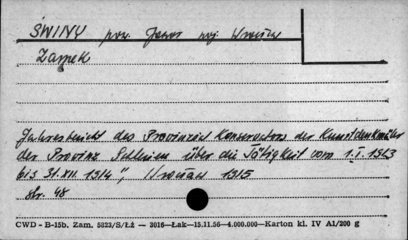 ŚWINY pow. Jawor woj. Wrocław
Zamek
Jahresbericht des Provinzial Konservators der Kunstdenkmäler
der Provinz Schlesien über die Tätigkeit vom 1.I. 1913
bis 31.XII. 1914", Wrocław 1915
str. 48
CWD - B-15b. Zam. 5823/S/Łż — 3016—Łak—15.11.56—4.000.000—Karton kl. IV A1/200 g